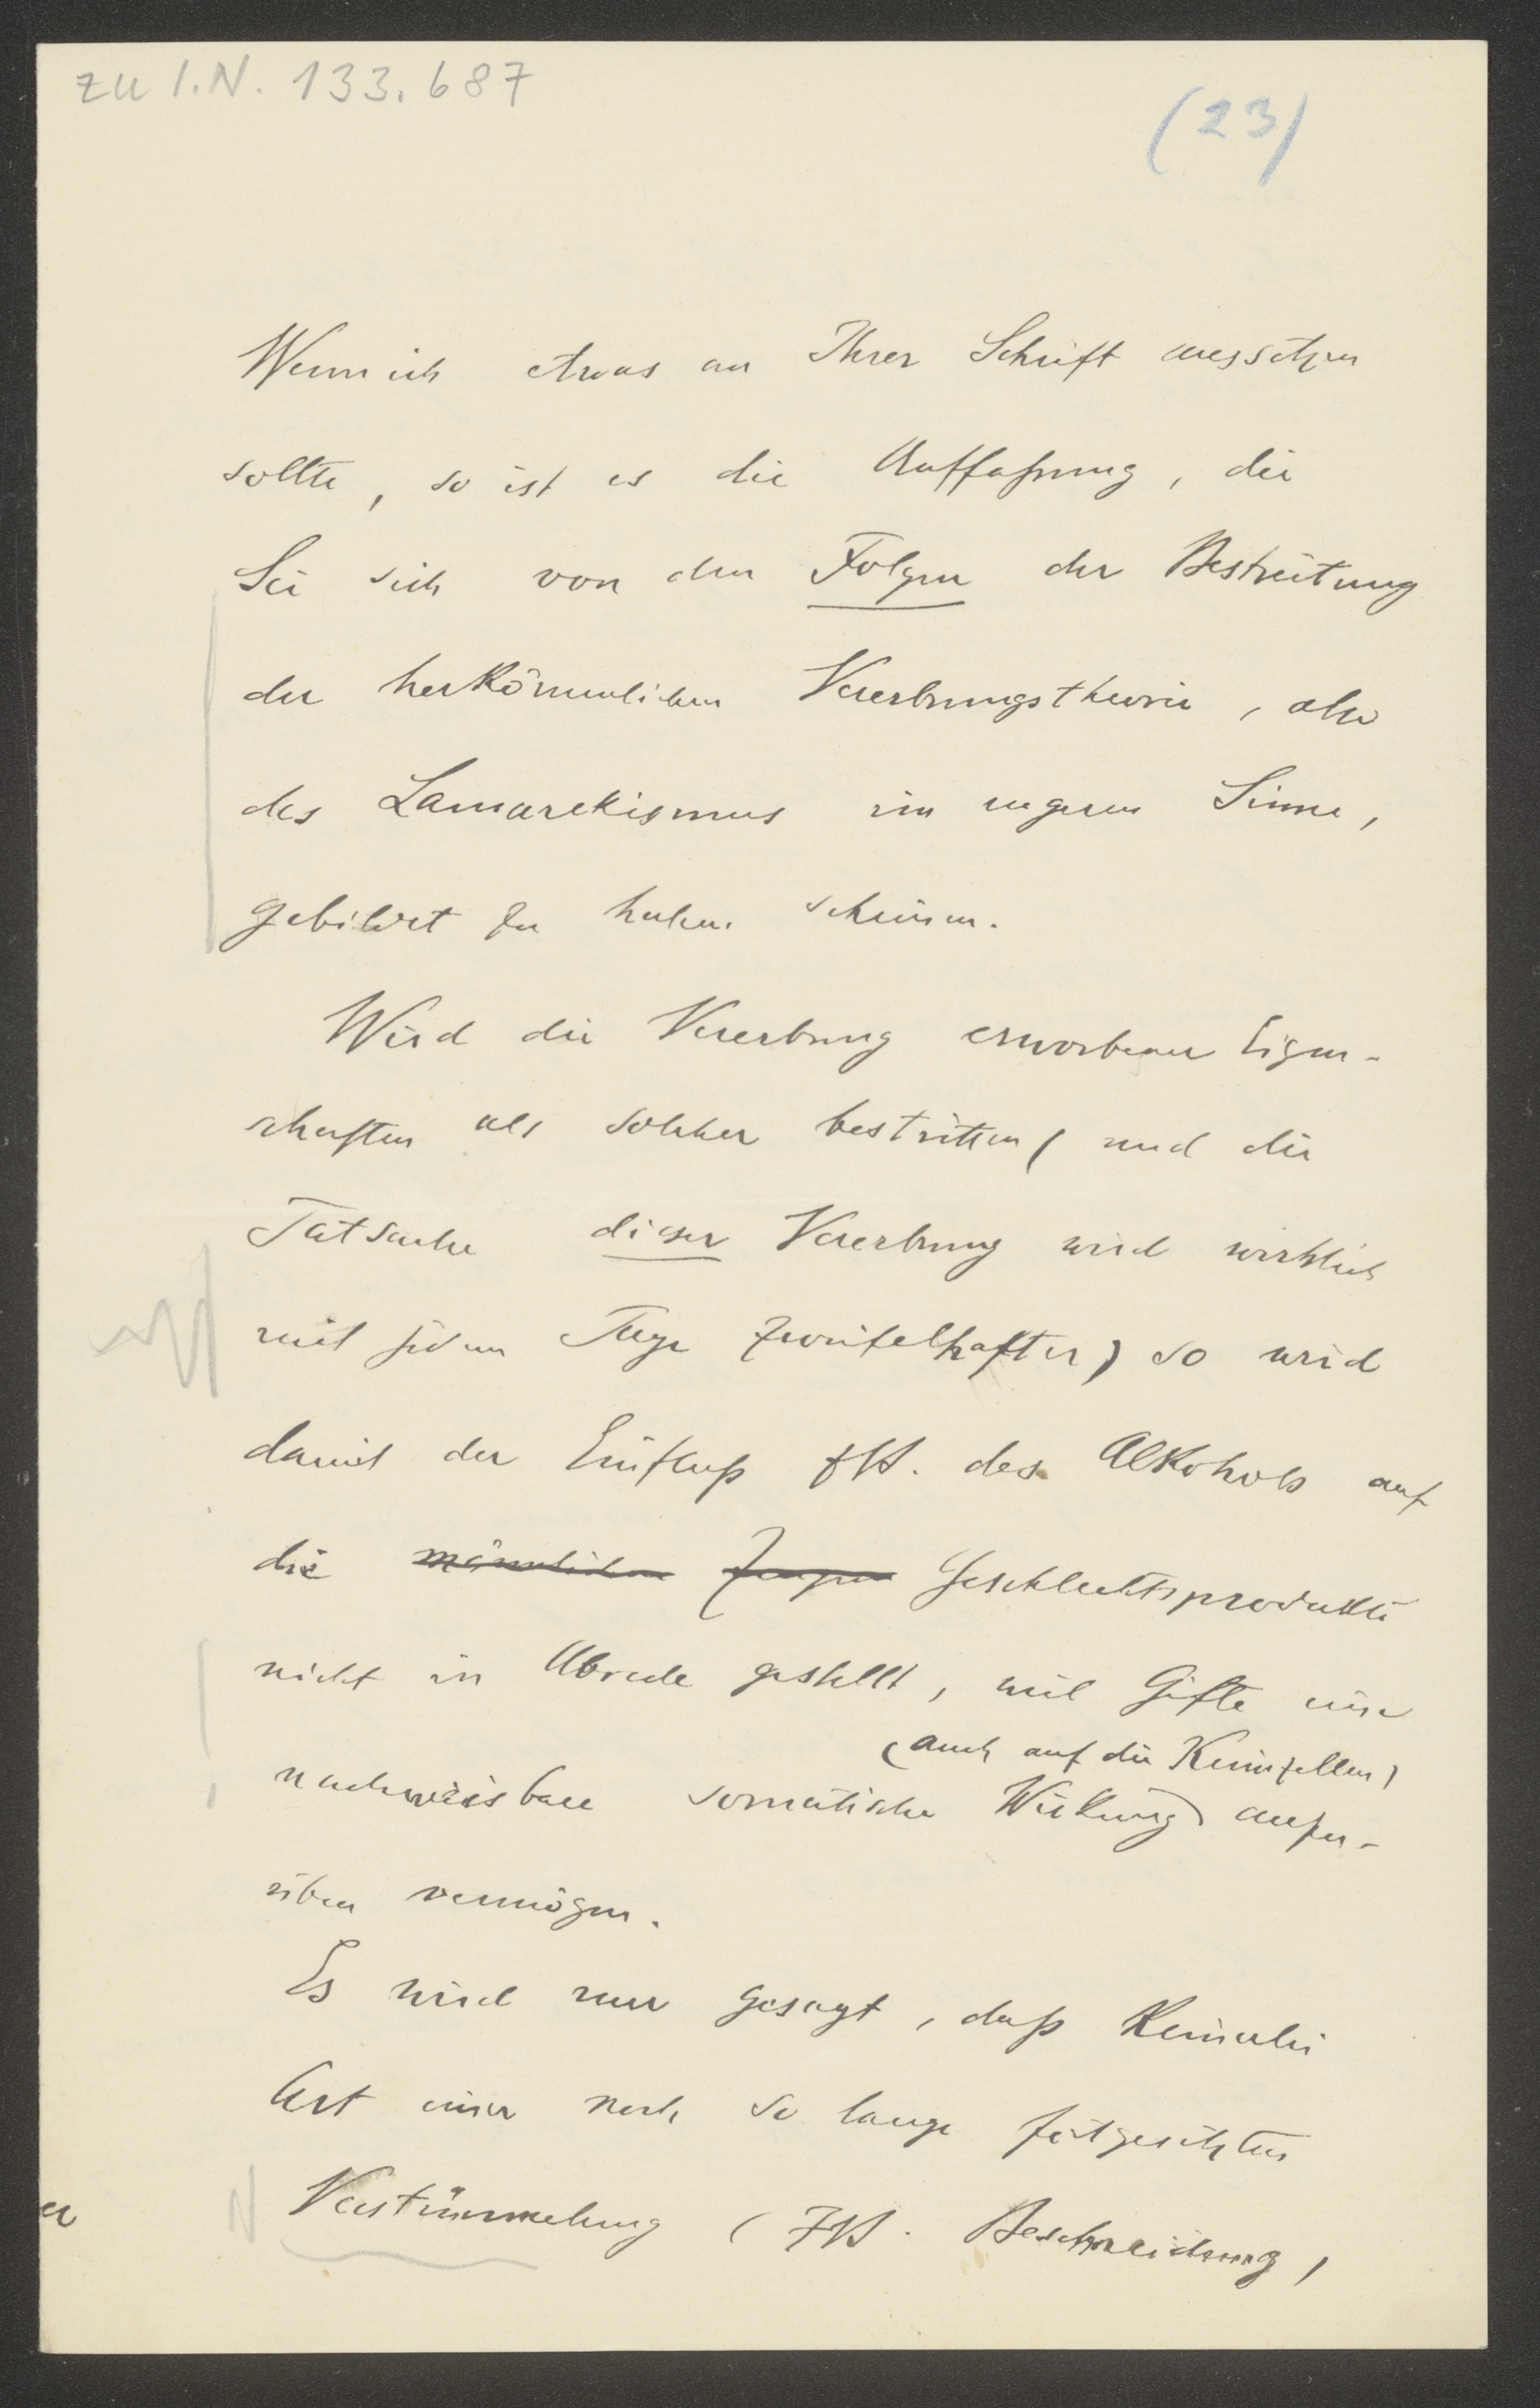 zu I.N. 133.687
(23)
Wenn ich etwas an Ihrer Schrift aussetzen
sollte, so ist es die Auffaßung, die
Sie sich von den Folgen der Bestreitung
der herkömmlichen Vererbungstheorie, also
des Lamarckismus im engeren Sinne,
gebildet zu haben scheinen.
Wird die Vererbung erworbener Eigen-
schaften als solcher bestritten (und die
Tatsache dieser Vererbung wird wirklich
mit jedem Tage zweifelhafter) so wird
damit der Einfluß zB. des Alkohols auf
die männlichen Zeugun Geschlechtsprodukte
nicht in Abrede gestellt, weil Gifte eine
(auch auf die Keimzellen)
nachweisbare somatische Wirkung auszu-
üben vermögen.
Es wird nur gesagt, daß keinerlei
Art einer noch so lange fortgesetzten
Verstümmelung (zB. Beschneidung,
er